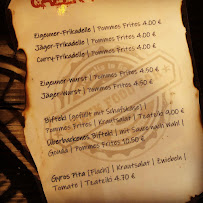 Eigeuner-Frikadelle | Pommes Frites 4.00 €
Jäger-Frikadelle | Pommes Frites 4.00 €
Curry-Frikadelle | Pommes Frites 4.00 €
Eigeuner-Wurst | Pommes Frites 4.50 €
Jäger-Wurst | Pommes Frites 4.50 €
Bifteki (gefüllt mit Schafskäse) |
Pommes Frites | Krautsalat | Tzatziki 9.00 €
Überbackenes Bifteki | mit Sauce nach Wahl |
Gouda | Pommes Frites 10.50
Gyros Pita [Fladen] | Krautsalat | Zwiebeln |
Tomate | Tzatziki 4.70 €